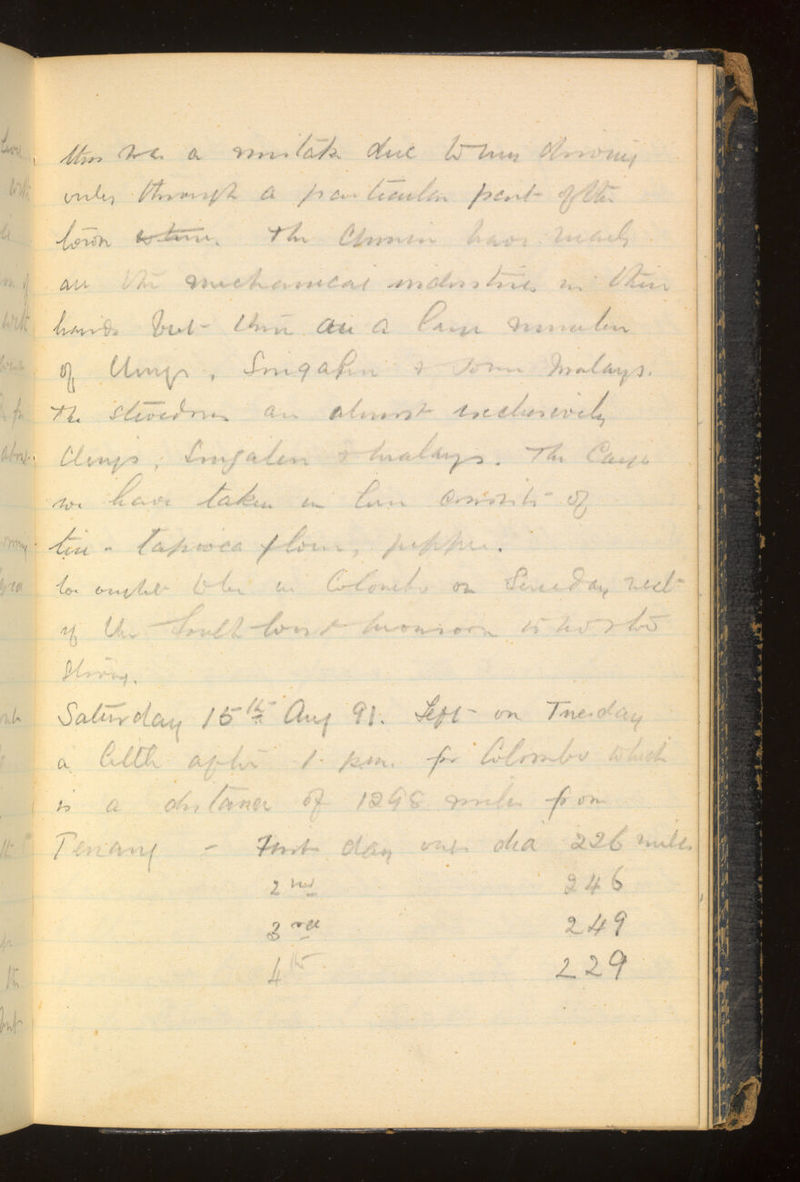 this was a mistake due to my driving
only through a particular part of the
town <s>when</s>. The Chinese have nearly
all the mechanical industries in their
hands but there are a large number
of Clings, Singalese & some Malays.
The stevedores are almost exclusively
Clings, Singalese & Malays. The Cargo
we have taken in here consists of
tin - tapioca flour, pepper.
We ought to be in Colombo on Sunday next
if the South West monsoon is not too
strong.
Saturday 15th Aug 91. Left on Tuesday
a little after 1. p.m. for Colombo which
is a distance of 1298 miles from
Penang - First day only did 226 miles
2nd 246
3rd 249
4th 229